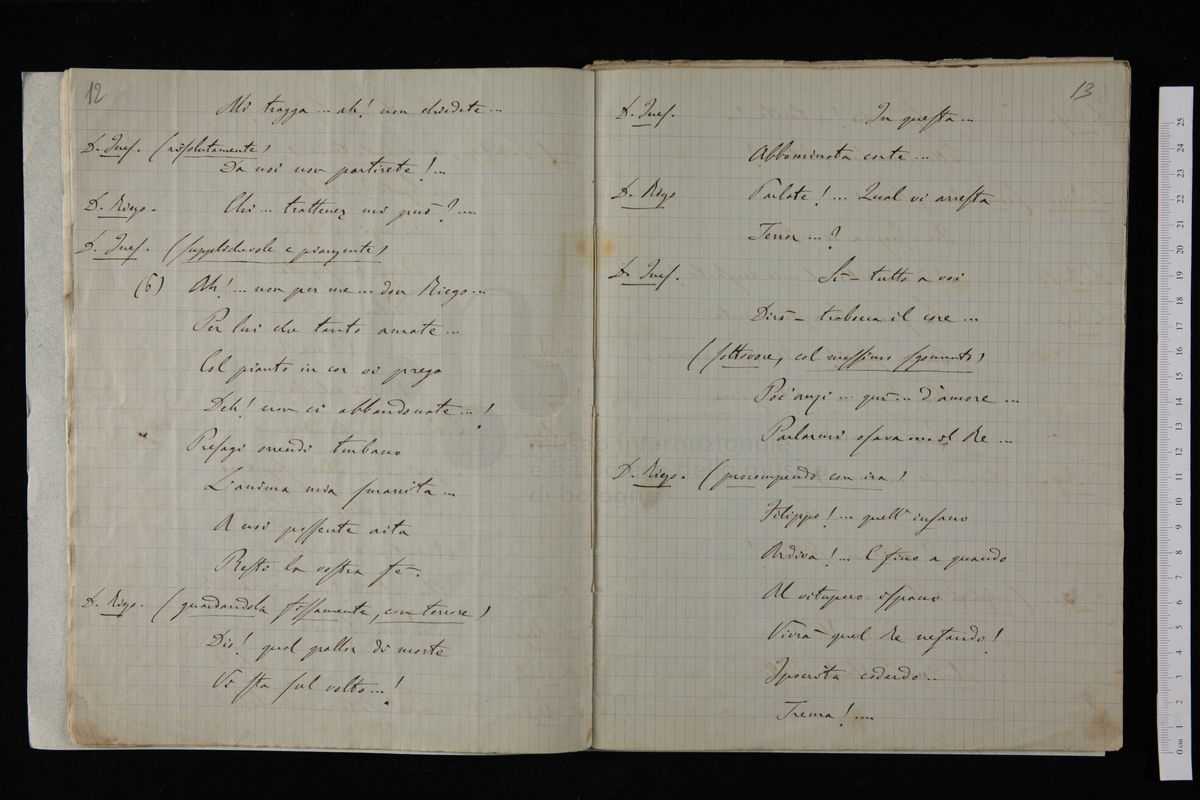 12
Mi tragga ... ah! non chiedete ...
D. Ines. (risolutamente)
Da noi non partirete! ...
D. Riego. Chi ... trattener mi può? ...
D. Ines. (supplichevole e piangente)
(6) Ah! ... non per me ... don Riego ...
Per lui che tanto amate ...
Col pianto in cor vi prego
Deh! non ci abbandonate ... !
Presagi orrendi turbano
L'anima mia smarrita ...
A noi possente aita
Resti la vostra fè.
D. Riego. (guardandola fissamente, con terrore)
Dio! qual pallor di morte
Vi sta sul volto ... !
13
D. Ines. In questa ...
Abbominata corte ...
D. Riego Parlate! ... Qual vi arresta
Terror ... ?
D. Ines. Sì – tutto a voi
Dirò – trabocca il core ...
(sottovoce, col massimo sgomento)
Poc'anzi ... quì ... d'amore ...
Parlarmi osava ... il Re ...
D. Riego. (prorompendo con ira)
Filippo! ... quell'insano
Ardiva! ... E fino a quando
Al vitupero ispano
Vivrà quel Re nefando!
Ipocrita codardo ..
Trema! ...
museo internazionale
e biblioteca della musica
di bologna
0 cm 1 2 3 4 5 6 7 8 9 10 11 12 13 14 15 16 17 18 19 20 21 22 23 24 25